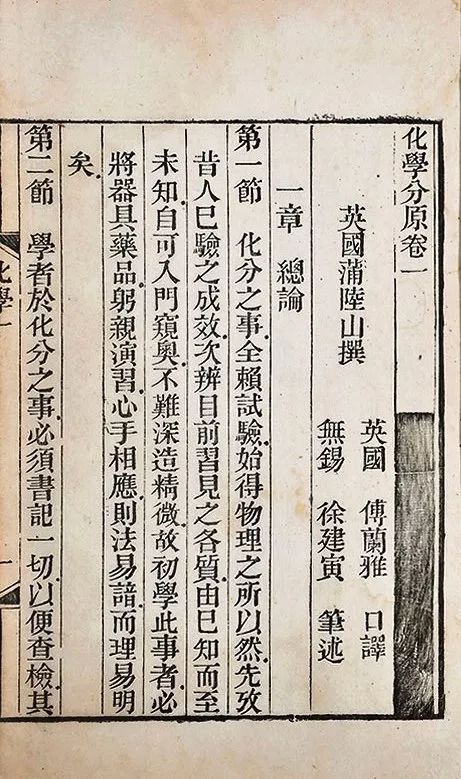 化學分原卷一
英國蒲陸山撰
英國 傅蘭雅 口譯
無錫 徐建寅 筆述
一章 總論
第一節 化分之事全賴試驗始得物理之所以然先攷
昔人巳驗之成效次辨目前習見之各質由巳知而至
未知自可入門窺奧不難深造精微故初學此事者必
將器具藥品躬親演習心手相應則法易諳而理易明
矣
第二節 學者於化分之事必須書記一切以便查檢其
化學一
一